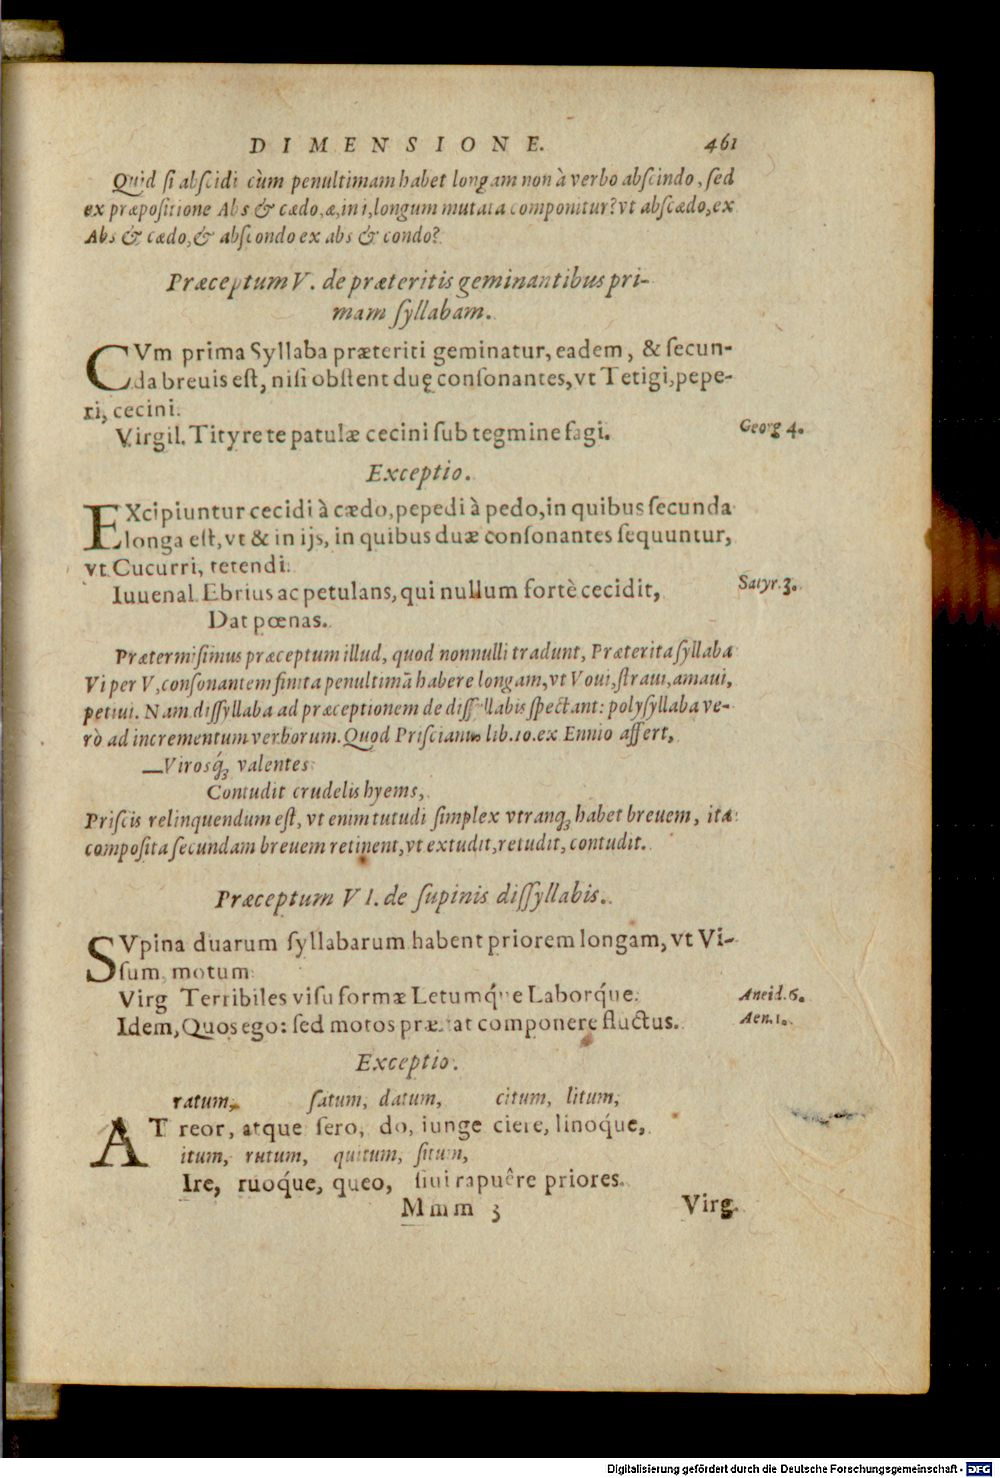 DIMENSIONE. 461
Quid ſi abſcidi cùm penultimam habet longam non à verbo abſcindo, ſed
ex præpoſitione Abs & cædo, æ, in i, longum mutata componitur? vt abſcædo, ex
Abs & cædo, & abſcondo ex abs & condo?
Præceptum V. de præteritis geminantibus pri-
mam ſyllabam.
CVm prima Syllaba præteriti geminatur, eadem, & ſecun-
da breuis eſt, niſi obſtent duę conſonantes, vt Tetigi, pepe-
ri, cecini.
Virgil. Tityre te patulæ cecini ſub tegmine fagi. Georg 4.
Exceptio.
EXcipiuntur cecidi à cædo, pepedi à pedo, in quibus ſecunda
longa eſt, vt & in ijs, in quibus duæ conſonantes ſequuntur,
vt Cucurri, tetendi.
Iuuenal. Ebrius ac petulans, qui nullum fortè cecidit, Satyr. 3.
Dat pœnas.
Prætermiſimus præceptum illud, quod nonnulli tradunt, Præterita ſyllaba
Vi per V, conſonantem finita penultimā habere longam, vt Voui, ſtraui, amaui,
petiui. Nam diſſyllaba ad præceptionem de diſſyllabis ſpectant: polyſyllaba ve-
rò ad incrementum verborum. Quod Priſcianus lib. 10. ex Ennio affert,
—Virosq́ꝫ valentes
Contudit crudelis hyems,
Priſcis relinquendum eſt, vt enim tutudi ſimplex vtranqꝫ habet breuem, ita
compoſita ſecundam breuem retinent, vt extudit, retudit, contudit.
Præceptum VI. de ſupinis diſſyllabis.
SVpina duarum ſyllabarum habent priorem longam, vt Vi-
ſum, motum
Virg Terribiles viſu formæ Letumq́ue Laborq́ue. Aneid. 6.
Idem, Quos ego: ſed motos præſtat componere fluctus. Aen. 1.
Exceptio.
ratum, ſatum, datum, citum, litum,
AT reor, atque ſero, do, iunge ciere, linoq́ue,
itum, rutum, quitum, ſitum,
Ire, ruoq́ue, queo, ſiui rapuêre priores.
Mmm 3 Virg.
Digitalisierung gefördert durch die Deutsche Forschungsgemeinschaft - DFG